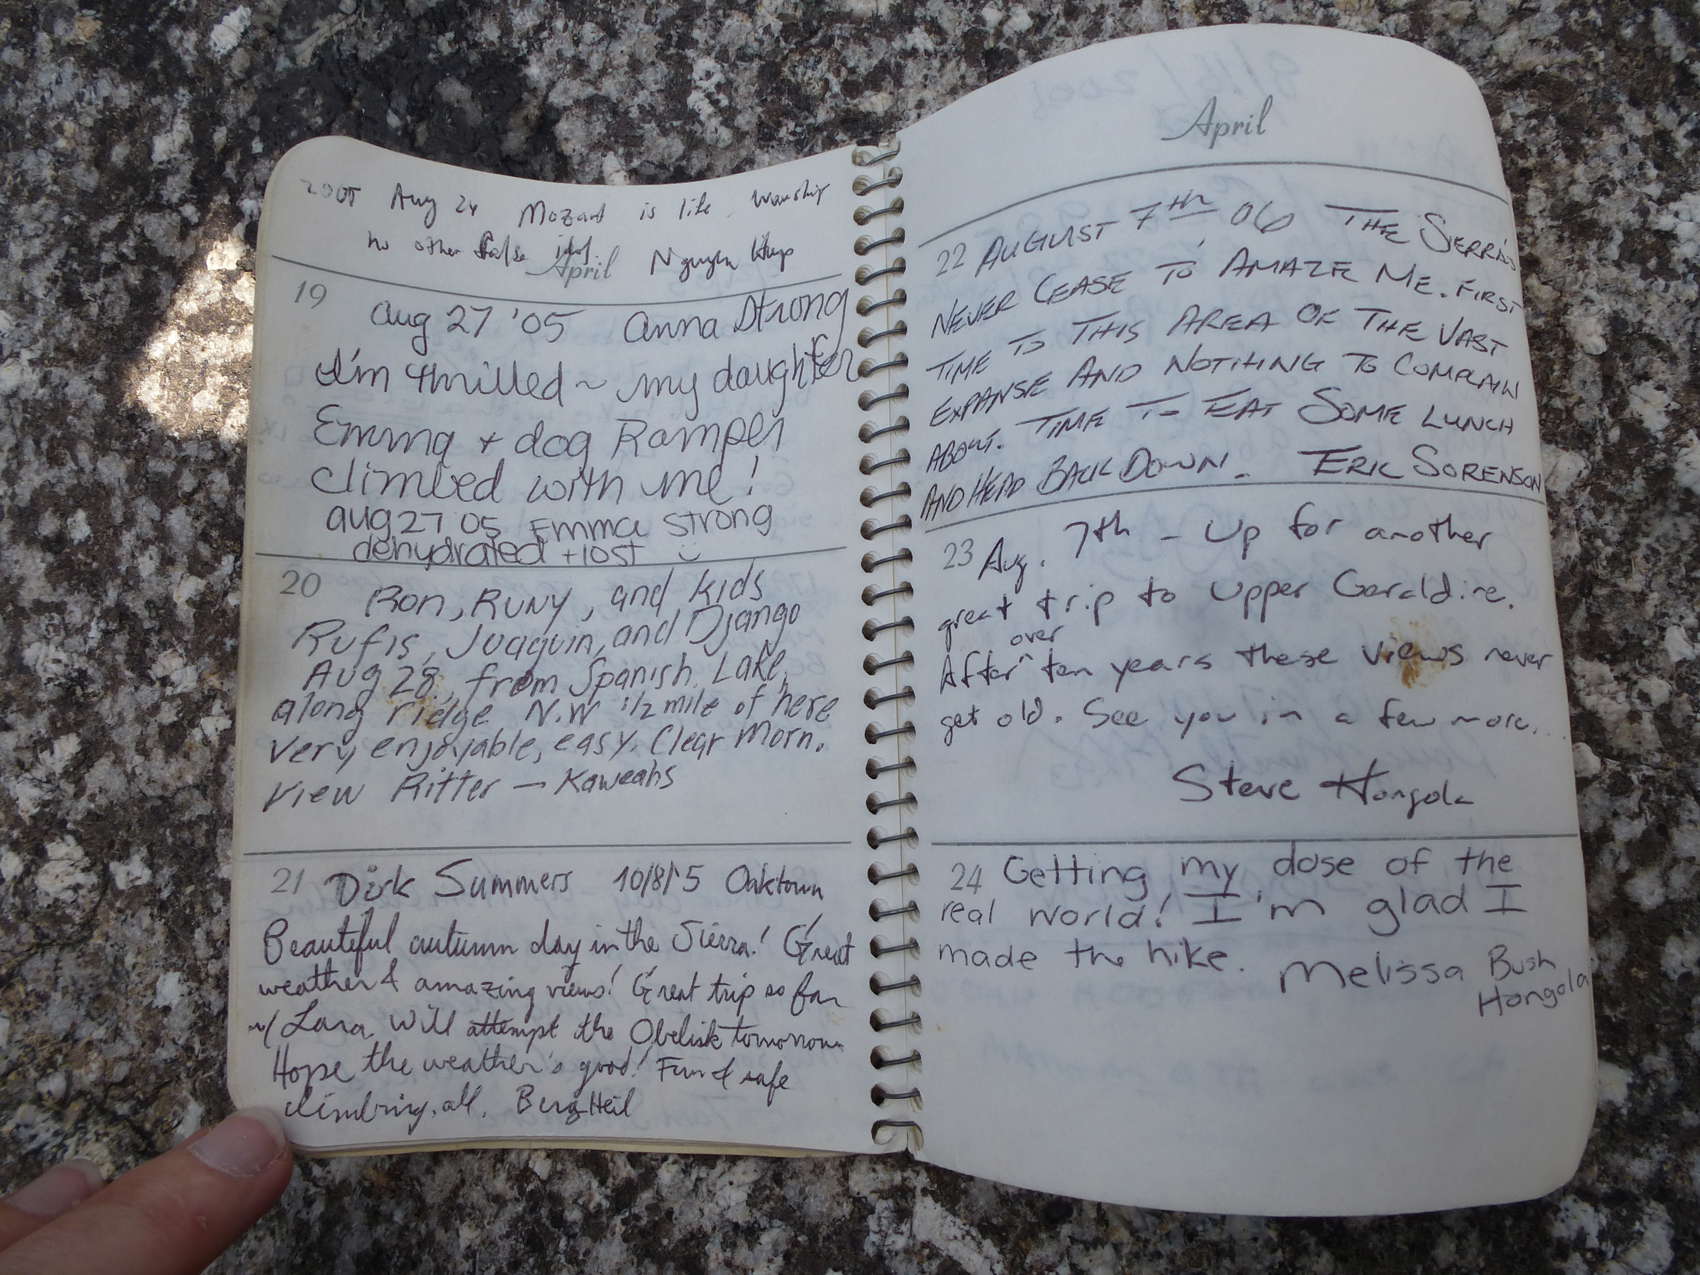 2005 Aug 24 Mozart is life. Worship
no other false idol Nguyen
April
19
Aug 27 '05 Anna Strong
I'm thrilled ~ my daughter
Emma + dog Ramper
climbed with me!
aug 27 05 Emma Strong
dehydrated + lost
20
Ron, Runy, and kids
Rufis, Juaquin, and Django
Aug 28, from Spanish Lake,
along ridge N.W 1/2 mile of here
Very enjoyable, easy. Clear Morn.
View Ritter — Kaweahs
21 Dirk Summers 10/8/5 Oaktown
Beautiful autumn day in the Sierra! Great
weather & amazing views! Great trip so far
w/ Lara. Will attempt the Obelisk tomorrow
Hope the weather's good! Fun & safe
climbing, all. Berg Heil
April
22 AUGUST 7th 06 THE SIERRA'S
NEVER CEASE TO AMAZE ME. FIRST
TIME TO THIS AREA OF THE VAST
EXPANSE AND NOTHING TO COMPLAIN
ABOUT. TIME TO EAT SOME LUNCH
AND HEAD BACK DOWN. ERIC SORENSON
23 Aug. 7th - Up for another
great trip to Upper Geraldine.
After over ten years these views never
get old. See you in a few more...
Steve Hongola
24 Getting my dose of the
real world! I'm glad I
made the hike. Melissa Bush
Hongola